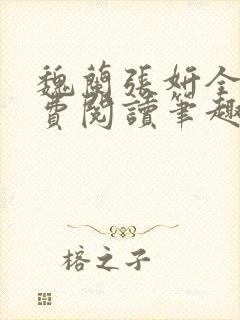 魏蘭張妍全
費閱讀筆趣
榕之子